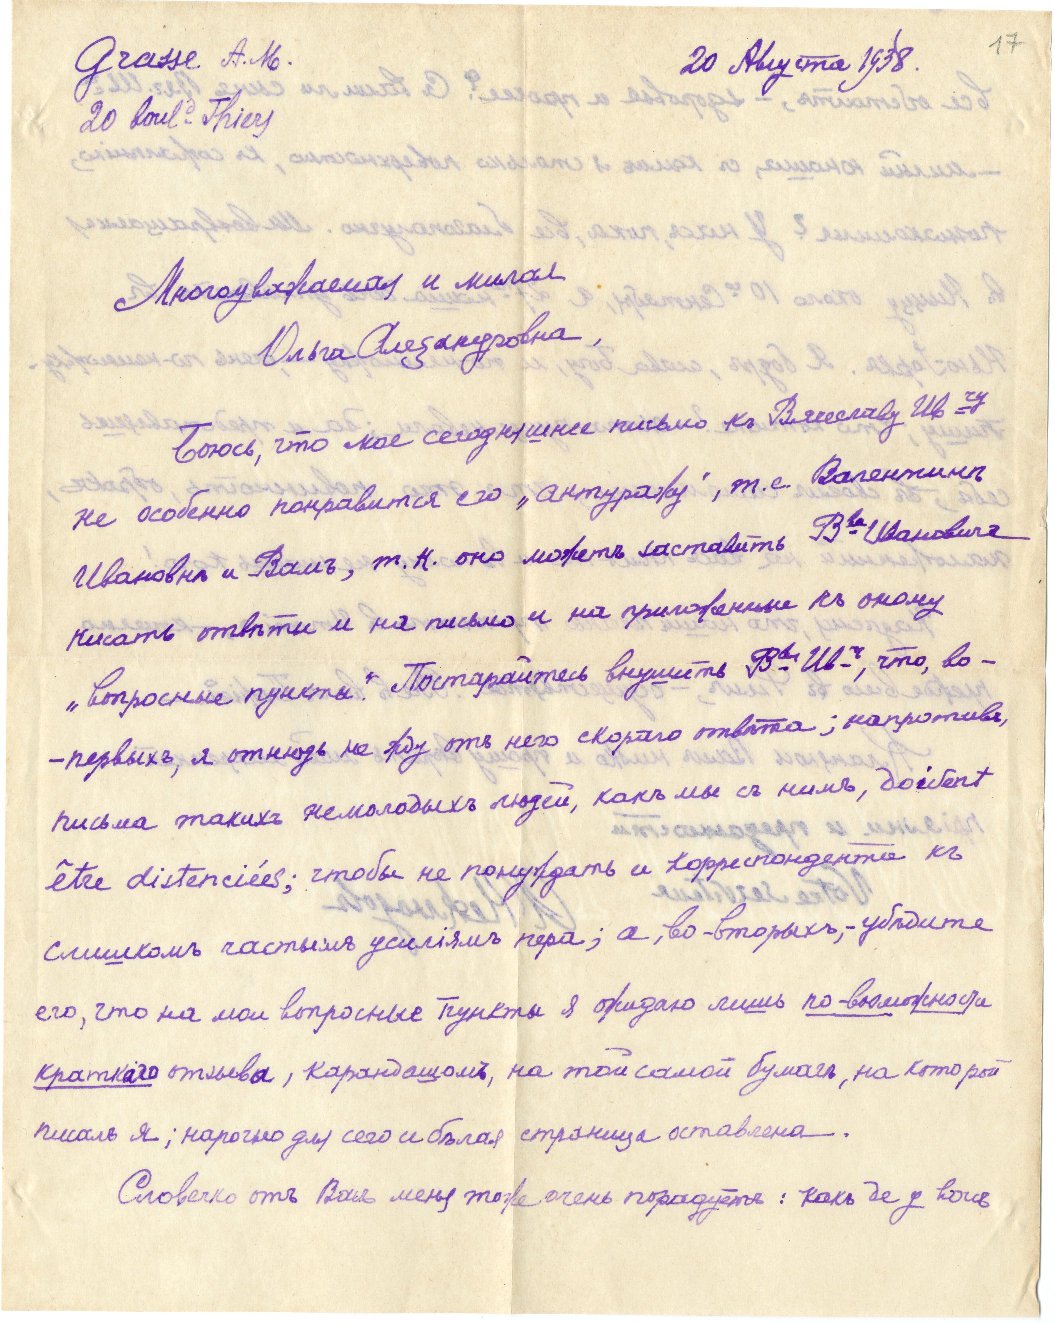 17
Grasse A.M.
20 Августа 1938.
20 boul<sup>d</sup> Thiers
Многоуважаемая и милая
Ольга Александровна,
Боюсь, что мое сегодняшнее письмо къ Вячеславу Ив-чу
не особенно понравится его „антуражу", т.е. Валентинѣ
Ивановнѣ и Вамъ, т.к. оно можетъ заставить В-ва Ивановича
писать отвѣты и на письмо и на приложенные къ оному
„вопросные пункты". Постарайтесь внушить В-ву Ив-чу, что, во-
-первыхъ, я отнюдь не жду отъ него скораго отвѣта; напротивъ,
письма такихъ немолодыхъ людей, какъ мы съ нимъ, doivent
être distenciées; чтобы не понуждать и корреспондента къ
слишкомъ частымъ усиліямъ пера; а, во-вторыхъ,-убѣдите
его, что на мои вопросные пункты я ожидаю лишь по-возможности
краткаго отзыва, карандашомъ, на той самой бумагѣ, на которой
писалъ я; нарочно для сего и бѣлая страница оставлена.
Словечко отъ Васъ меня тоже очень порадуетъ: какъ де у васъ